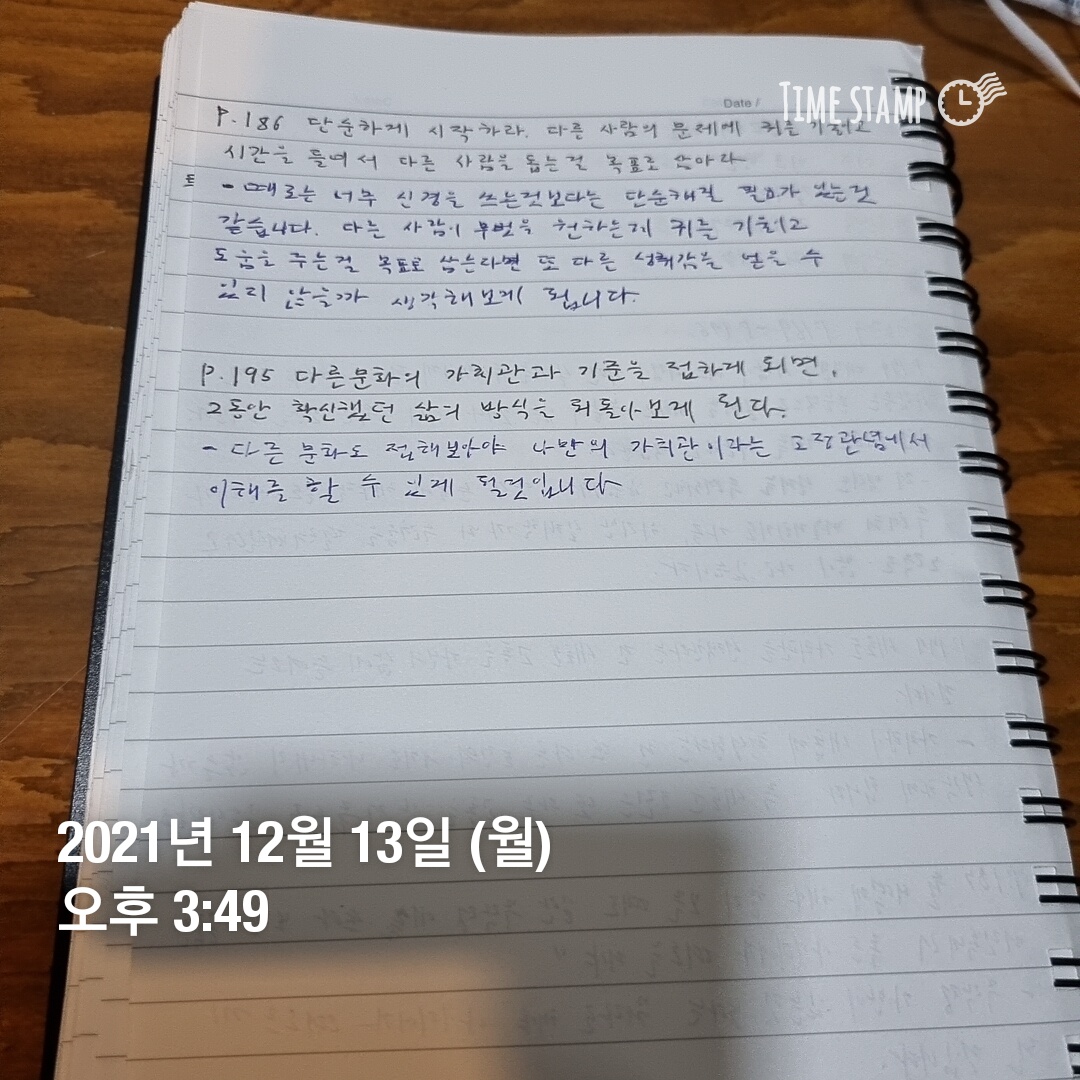 Date /
TIME STAMP
P.186 단순하게 시작하라. 다른 사람의 문제에 귀를 기울이고
시간을 들여서 다른 사람을 돕는걸 목표로 삼아라
- 때로는 너무 신경을 쓰는것보다는 단순해질 필요가 있는것
같습니다. 다른 사람이 무엇을 원하는게 귀를 기울이고
도움을 주는걸 목표로 삼는다면 또 다른 성취감을 얻을 수
있지 않을까 생각해보게 됩니다.
P.195 다른문화의 가치관과 기준을 접하게 되면,
그동안 확신했던 삶의 방식을 뒤돌아보게 된다.
- 다른 문화도 접해보아야 나만의 가치관이라는 고정관념에서
이해를 할 수 있게 될것입니다
2021년 12월 13일 (월)
오후 3:49